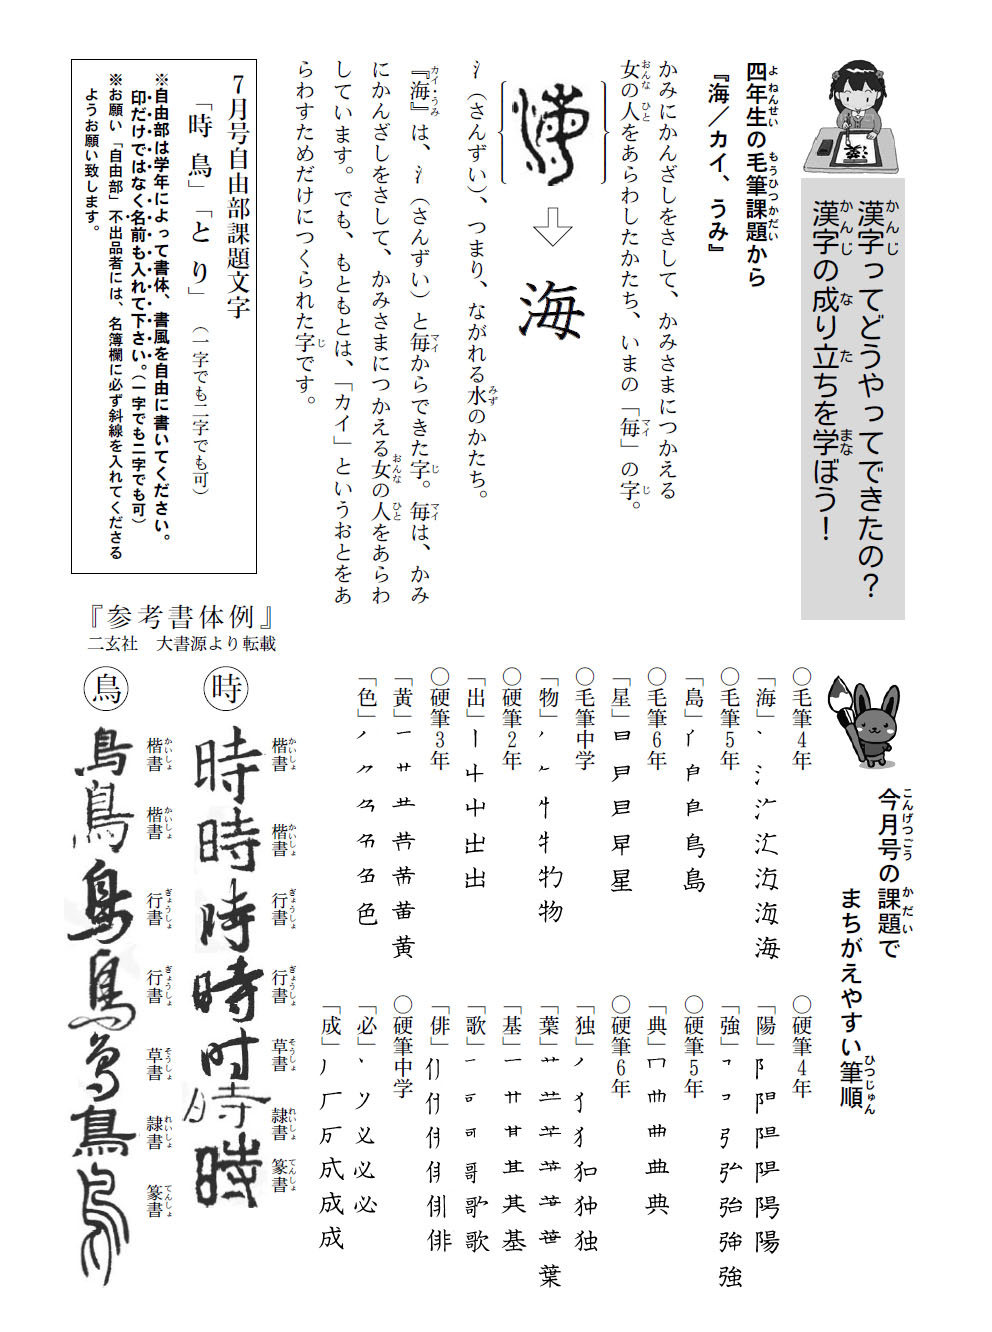 漢字ってどうやってできたの？
漢字の成り立ちを学ぼう！
四年生の毛筆課題から
『海／カイ、うみ』
かみにかんざしをさして、かみさまにつかえる
女の人をあらわしたかたち、いまの「毎」の字。
海
氵（さんずい）、つまり、ながれる水のかたち。
『海』は、氵（さんずい）と毎からできた字。毎は、かみ
にかんざしをさして、かみさまにつかえる女の人をあらわ
しています。でも、もともとは、「カイ」というおとをあ
らわすためだけにつくられた字です。
7月号自由部課題文字
「時 鳥」「と り」（一字でも二字でも可）
※自由部は学年によって書体、書風を自由に書いてください。
印だけではなく名前も入れて下さい。（一字でも二字でも可）
※お願い「自由部」不出品者には、名簿欄に必ず斜線を入れてくださる
ようお願い致します。
今月号の課題で
まちがえやすい筆順
○毛筆4年
「海」
○毛筆5年
「島」
○毛筆6年
「星」
○毛筆中学
「物」
○硬筆2年
「出」
○硬筆3年
「黄」
「色」
○硬筆4年
「陽」
「強」
○硬筆5年
「典」
○硬筆6年
「独」
「葉」
「基」
「歌」
「俳」
○硬筆中学
「必」
「成」
『参考書体例』
二玄社　大書源より転載
時
楷書
楷書
行書
行書
草書
隷書
篆書
鳥
楷書
楷書
行書
行書
草書
隷書
篆書